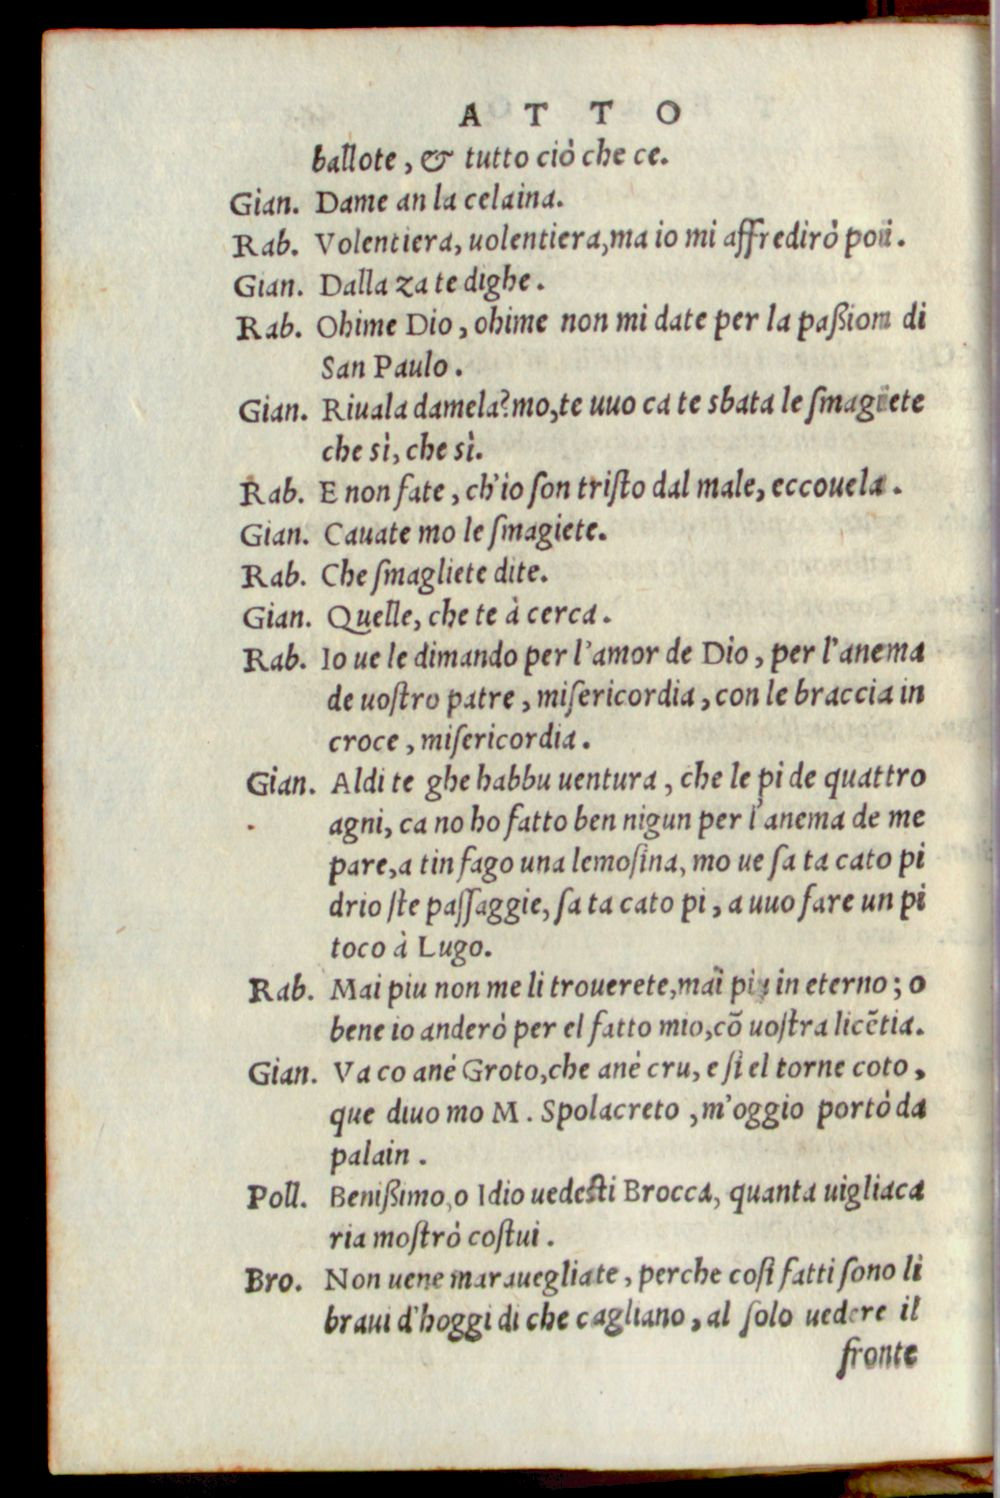 ATTO
ballote, & tutto ciò che ce.
Gian. Dame an la celaina.
Rab. Volentiera, uolentiera, ma io mi affredirò poi.
Gian. Dalla za te dighe.
Rab. Ohime Dio, ohime non mi date per la paßiom di
San Paulo.
Gian. Riuala damela? mo, te uuo ca te sbata le ſmagiete
che sì, che sì.
Rab. E non fate, ch'io ſon triſto dal male, eccouela.
Gian. Cauate mo le ſmagiete.
Rab. Che ſmagliete dite.
Gian. Quelle, che te à cerca.
Rab. Io ue le dimando per l'amor de Dio, per l'anema
de uoſtro patre, miſericordia, con le braccia in
croce, miſericordia.
Gian. Aldi te ghe habbu uentura, che le pi de quattro
agni, ca no ho fatto ben nigun per l'anema de me
pare, a tin fago una lemoſina, mo ue ſa ta cato pi
drio ſte paſſaggie, ſa ta cato pi, a uuo fare un pi
toco à Lugo.
Rab. Mai piu non me li trouerete, mai piu in eterno; o
bene io anderò per el fatto mio, cõ uoſtra licẽtia.
Gian. Va co ané Groto, che ané cru, e ſi el torne coto,
que diuo mo M. Spolacreto, m'oggio portò da
palain.
Poll. Benißimo, o Idio uedeſti Brocca, quanta uigliaca
ria moſtrò coſtui.
Bro. Non uene marauegliate, perche coſi fatti ſono li
braui d'hoggi di che cagliano, al ſolo uedere il
fronte